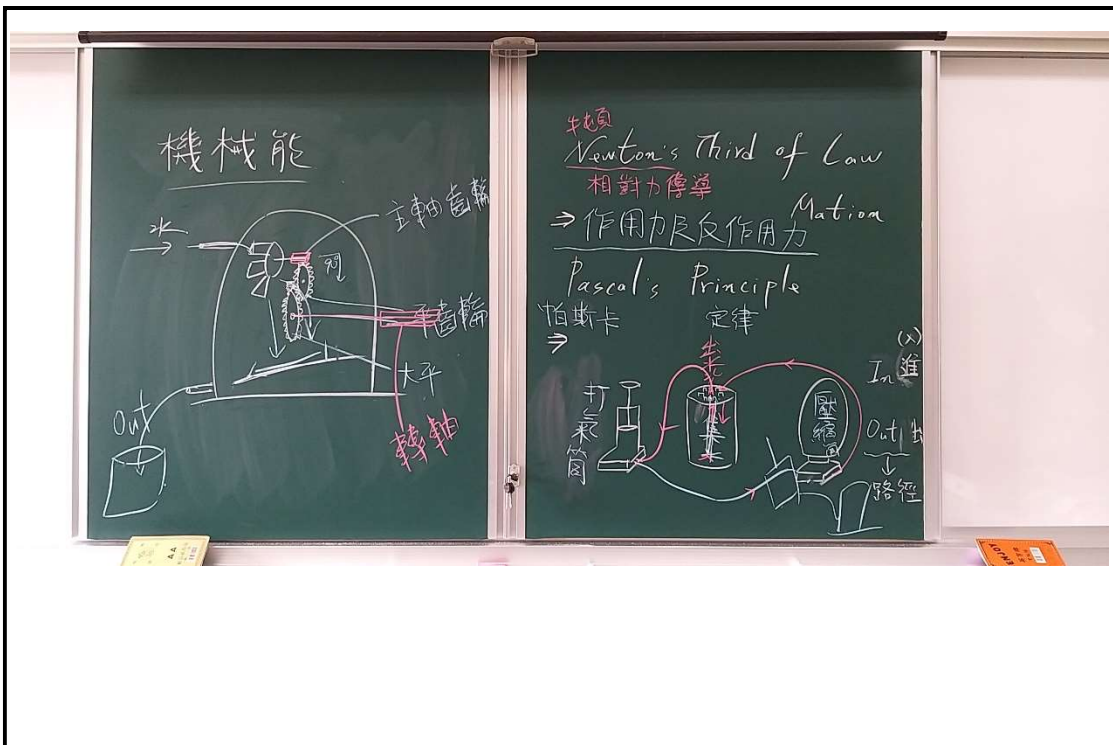 機械能
水
主軸齒輪
90°
平齒輪
大平
轉軸
Out
牛頓
Newton's Third of Law
相對力傳導
Mation
⇒ 作用力及反作用力
Pascal's Principle
帕斯卡 定律
⇒
打氣筒
壓縮
(x)
In 進
Out 出
路徑
AA
ENJOY